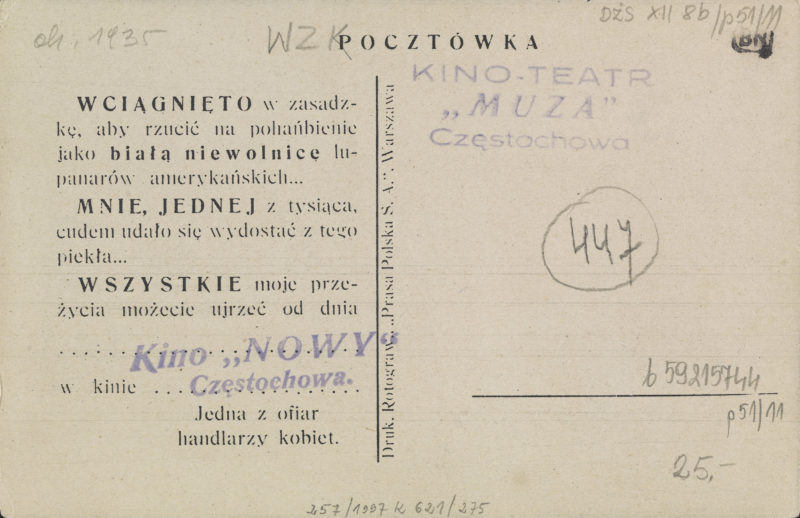 ok. 1935
WZK
DŻS XII 8b/p51/11
POCZTÓWKA
BN
KINO-TEATR
„MUZA”
Częstochowa
WCIĄGNIĘTO w zasadz-
kę, aby rzucić na pohańbienie
jako białą niewolnicę lu-
panarów amerykańskich...
MNIE, JEDNEJ z tysiąca,
cudem udało się wydostać z tego
piekła...
WSZYSTKIE moje prze-
życia możecie ujrzeć od dnia
Kino „NOWY”
w kinie
Częstochowa.
Jedna z ofiar
handlarzy kobiet.
Druk. Rotograw. „Prasa Polska S. A.”, Warszawa
447
b 59215744
p51/11
25.-
257/1997 K 621/275